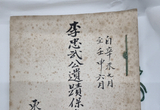 自辛未七月
至壬申六月
李忠武公遺蹟保